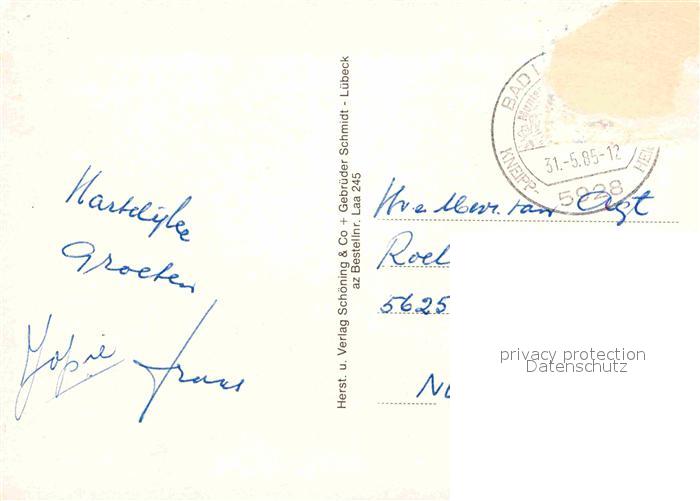 Hartelijke
Groeten
Jopie Frans
Herst. u. Verlag Schöning & Co + Gebrüder Schmidt - Lübeck
az Bestellnr. Laa 245
BAD
31.-5.85-12
KNEIPP-
HEI
5928
Roel
5625
privacy protection
Datenschutz